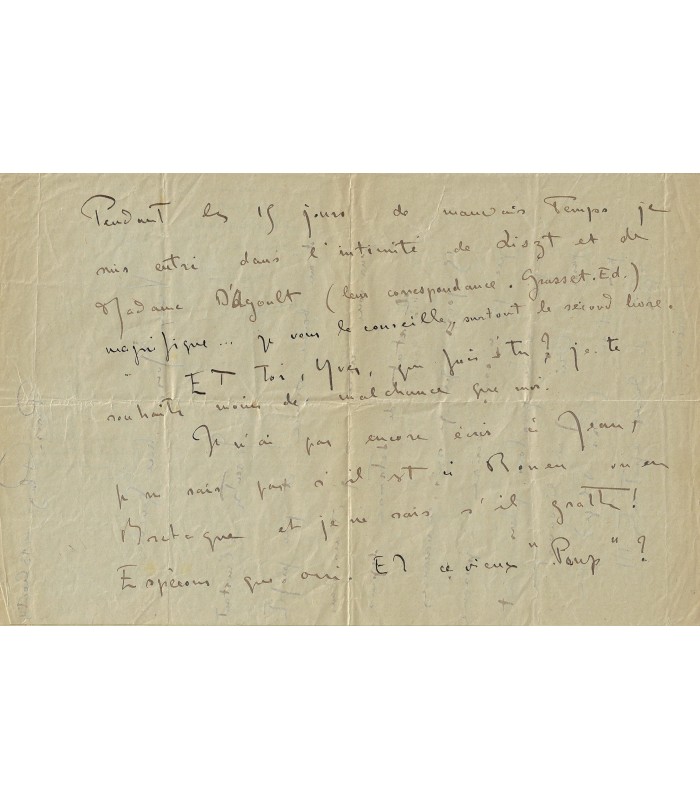 Pendant les 15 jours de mauvais temps je
suis entré dans l'intimité de Liszt et de
Madame D'Agoult (leur correspondance. Grasset. Ed.)
magnifique... je vous le conseille, surtout le second livre.
ET toi, Yves, que fais-tu? je te
souhaite moins de malchance que moi.
Je n'ai pas encore écris à Jean,
je ne sais pas s'il est à Rouen ou en
Bretagne et je ne sais s'il gratte!
Espérons que oui. ET ce vieux " " ?